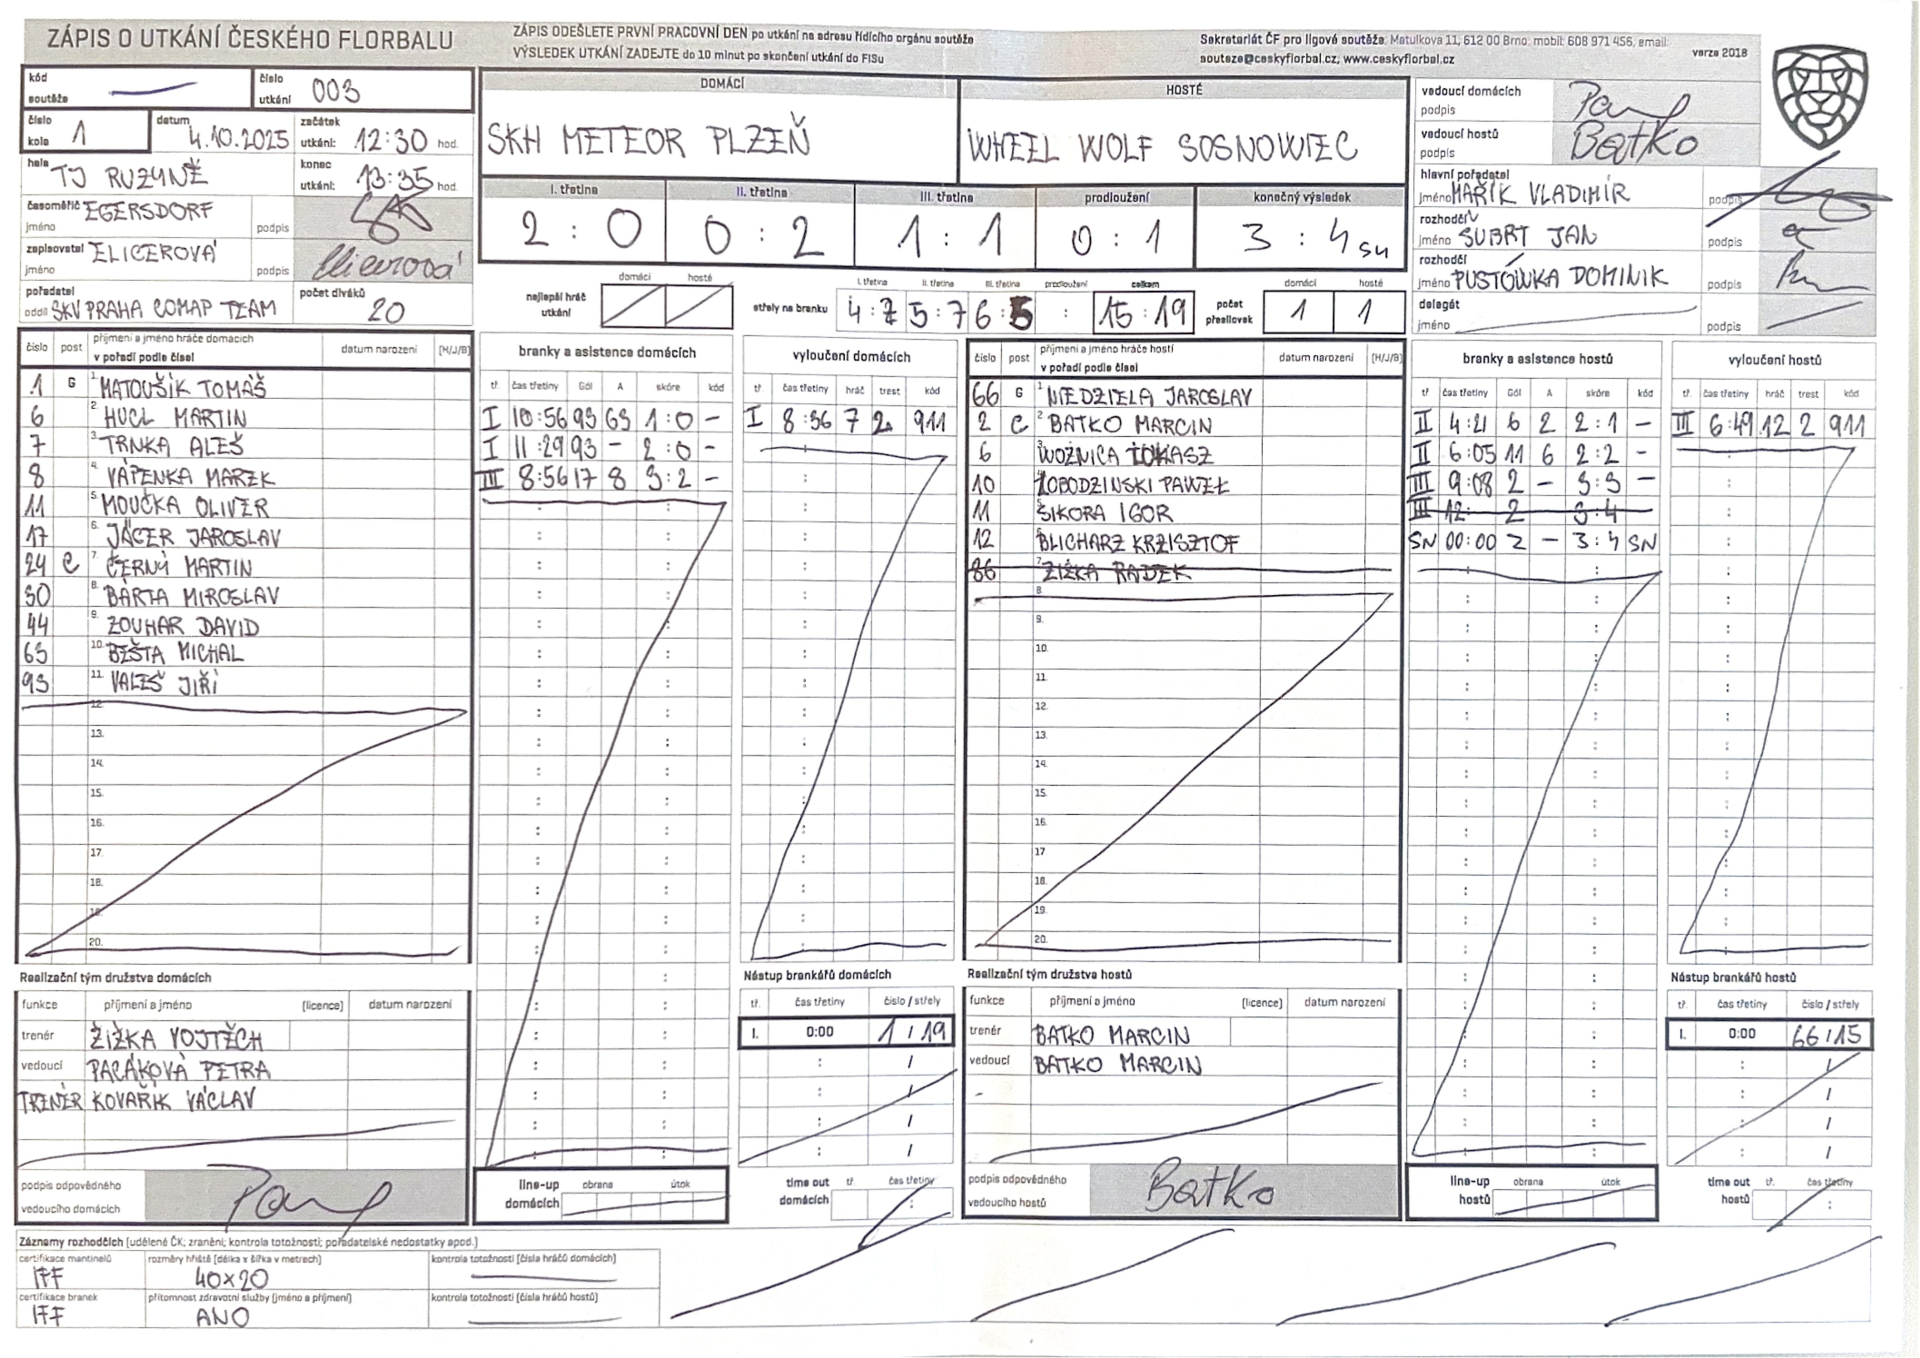 ZÁPIS O UTKÁNÍ ČESKÉHO FLORBALU
ZÁPIS ODEŠLETE PRVNÍ PRACOVNÍ DEN po utkání na adresu řídícího orgánu soutěže
VÝSLEDEK UTKÁNÍ ZADEJTE do 10 minut po skončení utkání do FISu
Sekretariát ČF pro ligové soutěže: Matulkova 11, 612 00 Brno; mobil: 608 971 456, email:
souteze@ceskyflorbal.cz; www.ceskyflorbal.cz
verze 2018
kód soutěže
číslo utkání 003
číslo kola 1
datum 4.10.2025
začátek utkání: 12:30 hod.
hala TJ RUZYNĚ
konec utkání: 13:35 hod.
časoměřič jméno EGERSDORF podpis
zapisovatel jméno ELICEROVÁ podpis Elicerová
pořadatel oddíl SKV PRAHA COMAP TEAM
počet diváků 20
DOMÁCÍ
SKH METEOR PLZEŇ
HOSTÉ
WHEEL WOLF SOSNOWIEC
I. třetina II. třetina III. třetina prodloužení konečný výsledek
2 : 0 0 : 2 1 : 1 0 : 1 3 : 4 SN
nejlepší hráč utkání domácí hosté
střely na branku I. třetina II. třetina III. třetina prodloužení celkem
4 : 7 5 : 7 6 : 5 : 15 : 19
počet přesilovek domácí hosté
1 1
vedoucí domácích podpis
vedoucí hostů podpis Batko
hlavní pořadatel jméno MAŘÍK VLADIMÍR podpis
rozhodčí jméno ŠUBRT JAN podpis
rozhodčí jméno PUSTÓWKA DOMINIK podpis
delegát jméno podpis
číslo post příjmení a jméno hráče domácích v pořadí podle čísel datum narození (H/J/B)
1 G 1. MATOUŠÍK TOMÁŠ
6 2. HUCL MARTIN
7 3. TRNKA ALEŠ
8 4. VÁPENKA MAREK
11 5. MOUČKA OLIVER
17 6. JÄGER JAROSLAV
24 C 7. ČERNÝ MARTIN
30 8. BÁRTA MIROSLAV
44 9. ZOUHAR DAVID
63 10. BEŠTA MICHAL
93 11. VALEŠ JIŘÍ
12.
13.
14.
15.
16.
17.
18.
19.
20.
branky a asistence domácích
tř. čas třetiny Gól A skóre kód
I 10:56 93 63 1:0 -
I 11:29 93 - 2:0 -
III 8:56 17 8 3:2 -
vyloučení domácích
tř. čas třetiny hráč trest kód
I 8:56 7 2 911
číslo post příjmení a jméno hráče hostí v pořadí podle čísel datum narození (H/J/B)
66 G 1. NIEDZIELA JAROSLAV
2 C 2. BATKO MARCIN
6 3. WOŹNICA TOKASZ
10 4. ŁOBODZINSKI PAWEŁ
11 5. SIKORA IGOR
12 6. BLICHARZ KRZISZTOF
86 7. ŽIŽKA RADEK
8.
9.
10.
11.
12.
13.
14.
15.
16.
17
18.
19.
20.
branky a asistence hostů
tř čas třetiny Gól A skóre kód
II 4:21 6 2 2:1 -
II 6:05 11 6 2:2 -
III 9:08 2 - 3:3 -
III 12: 2 3:4
SN 00:00 2 - 3:4 SN
vyloučení hostů
tř. čas třetiny hráč trest kód
III 6:49 12 2 911
Realizační tým družstva domácích
funkce příjmení a jméno (licence) datum narození
trenér ŽIŽKA VOJTĚCH
vedoucí PACÁKOVÁ PETRA
TRENÉR KOVAŘÍK VÁCLAV
podpis odpovědného vedoucího domácích
Nástup brankářů domácích
tř. čas třetiny číslo / střely
I. 0:00 1 / 19
line-up domácích obrana útok
time out domácích tř. čas třetiny
Realizační tým družstva hostů
funkce příjmení a jméno (licence) datum narození
trenér BATKO MARCIN
vedoucí BATKO MARCIN
podpis odpovědného vedoucího hostů Batko
Nástup brankářů hostů
tř. čas třetiny číslo / střely
I. 0:00 66 / 15
line-up hostů obrana útok
time out hostů tř. čas třetiny
Záznamy rozhodčích (udělené ČK; zranění; kontrola totožnosti; pořadatelské nedostatky apod.)
certifikace mantinelů IFF
rozměry hřiště (délka x šířka v metrech) 40x20
kontrola totožnosti (čísla hráčů domácích)
certifikace branek IFF
přítomnost zdravotní služby (jméno a příjmení) ANO
kontrola totožnosti (čísla hráčů hostů)